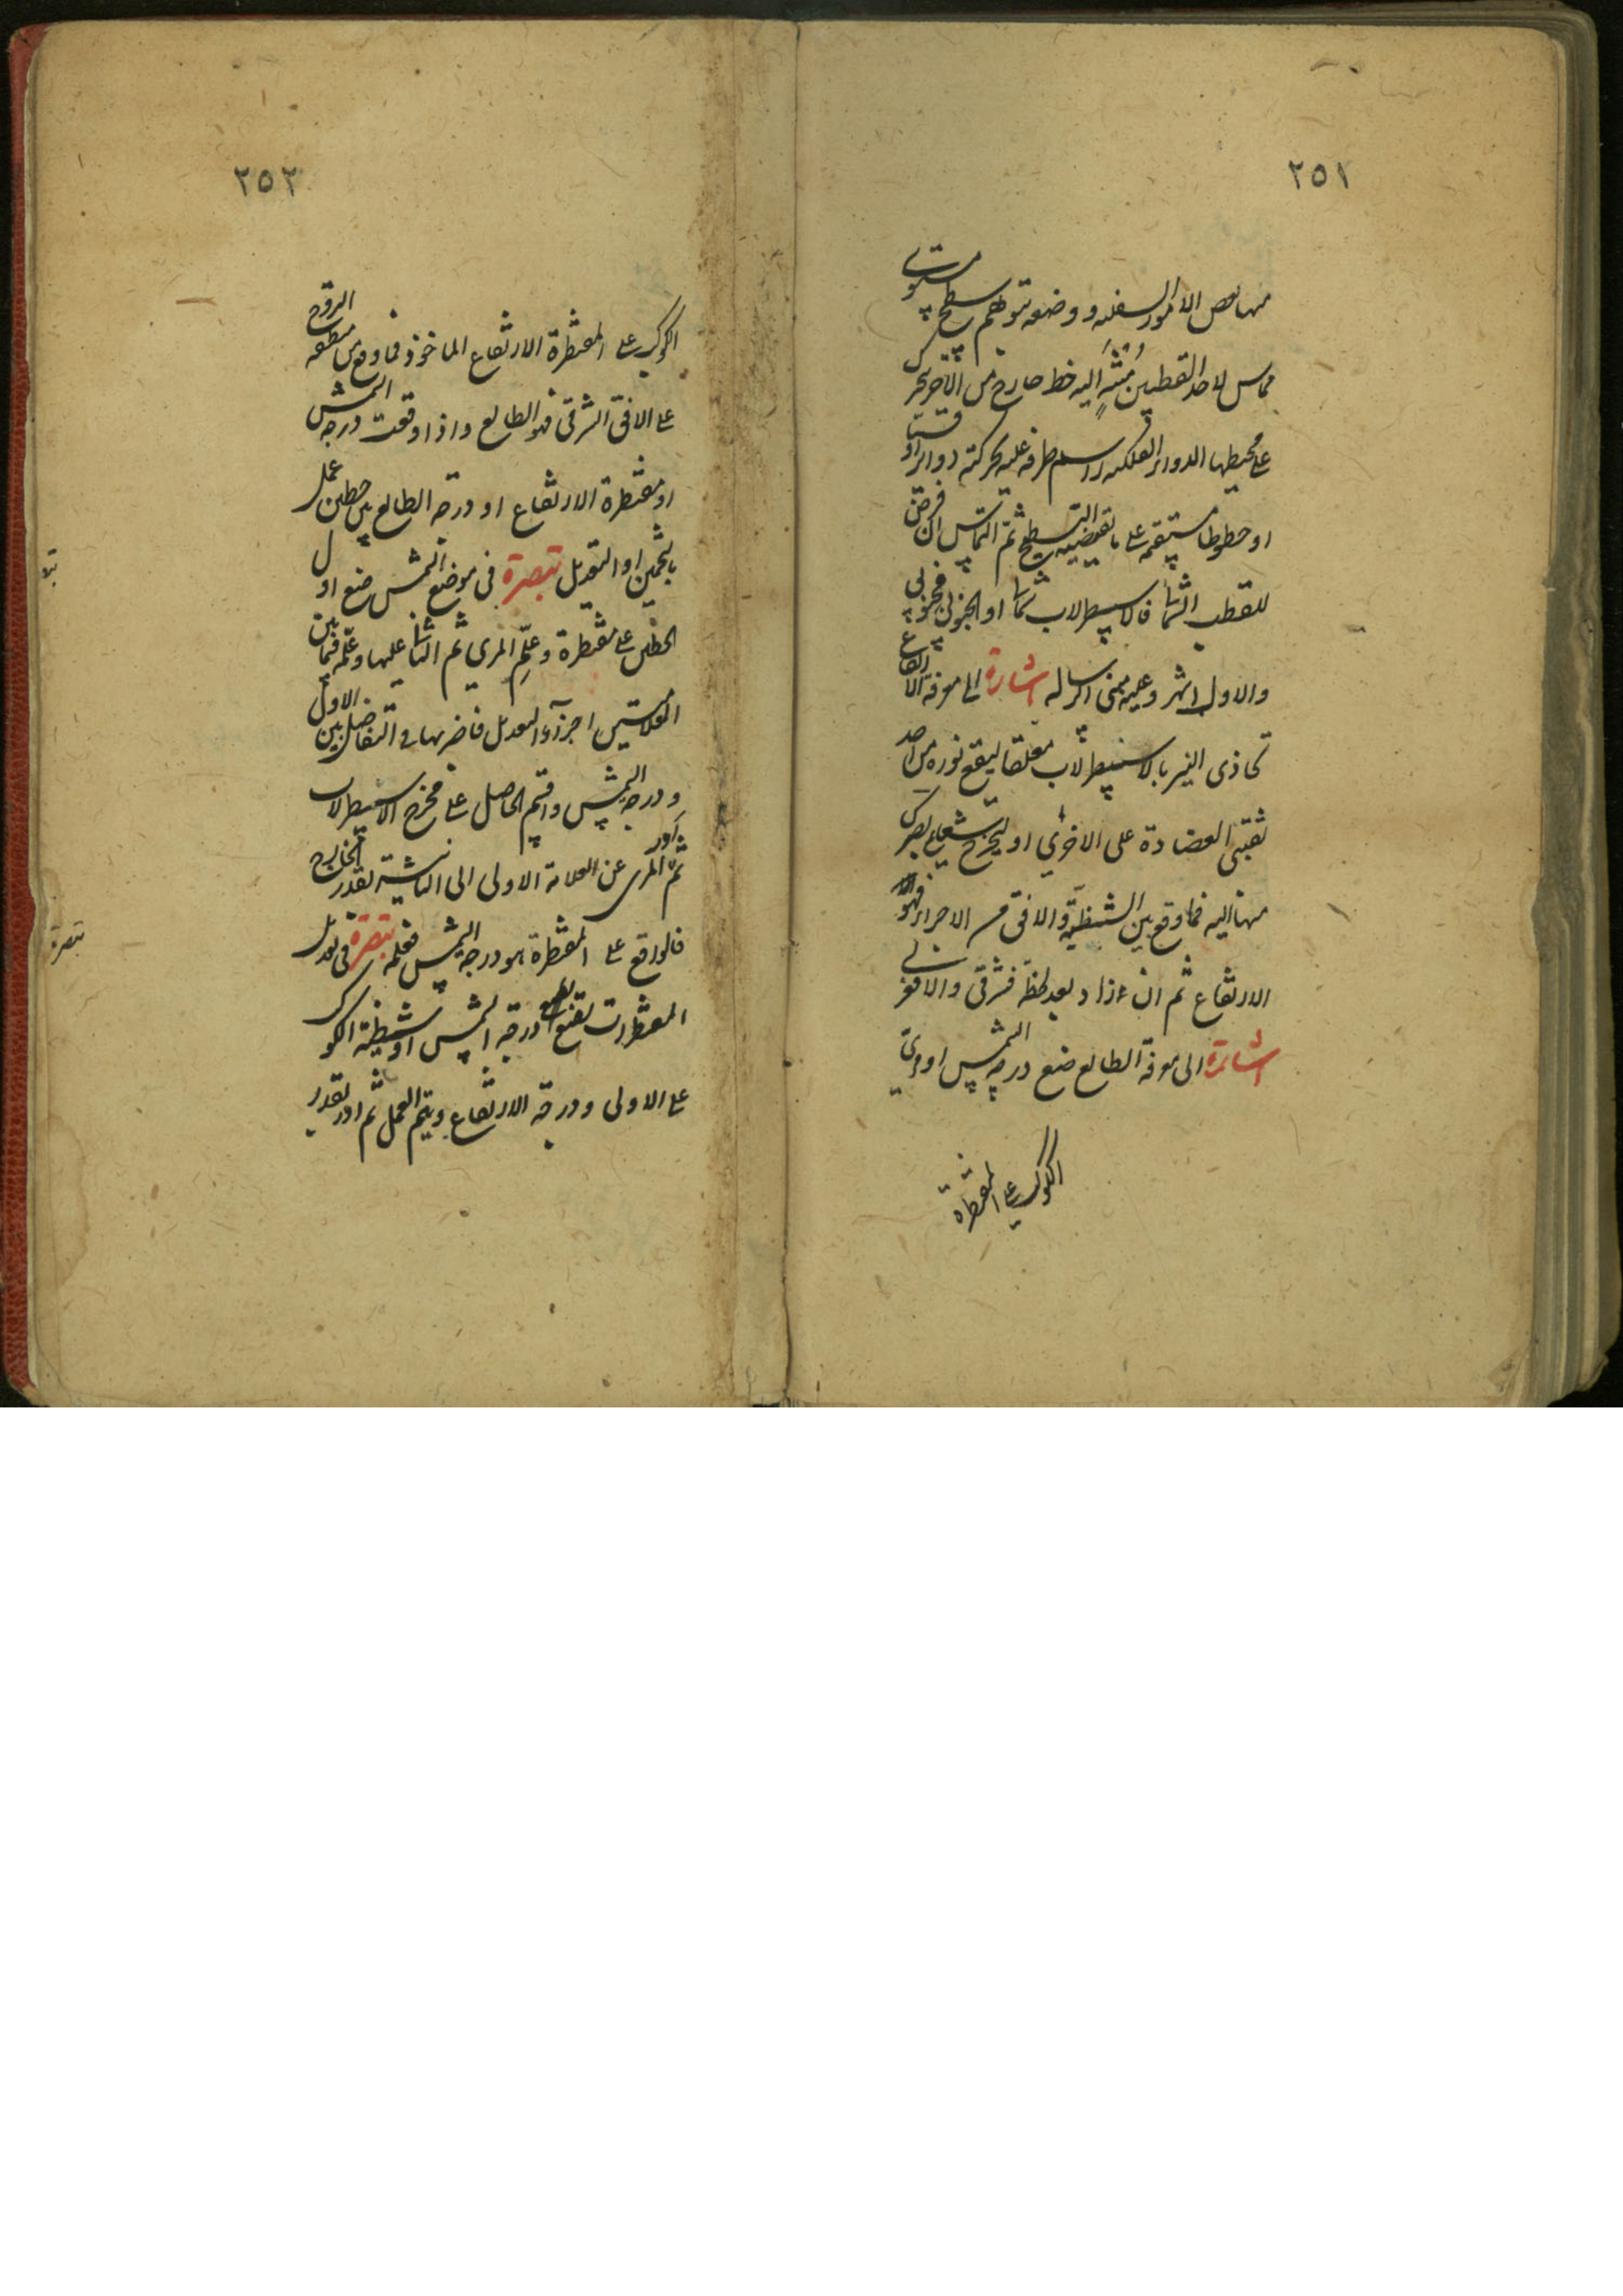 ٢٥١
منها بعض الامور السفليه ووضعه بتوهم سطح مستوى
مماس لاحد القطبين مُنْتَهٍ اليه خط خارج من الآخر يتحرك
على محيطها الدوائر الفلكيه راسم طرفه عليه بحركته دوائر او قسيا
او خطوطا مستقيمه على ما يقتضيه التسطيح ثم التماس ان فرض
للقطب الشمالى فالاسطرلاب شمالى او الجنوبى فجنوبى
والاول اشهر وعليه مبنى الرساله اشارة الى معرفة الارتفاع
تحاذى النير بالاسطرلاب معلقا ليقع نوره من احد
ثقبتى العضادة على الاخرى او ليخرج شعاع بصرك
منها اليه فما وقع بين الشظيّة والافق من الاجزاء فهو
الارتفاع ثم ان ازداد بعد لحظة فشرقى والا فغربى
اشارة الى معرفة الطالع ضع درجه الشمس او مرىّ
الكوكب على المقنطرة
٢٥٢
الكوكب على المقنطرة الارتفاع الماخوذ فما وقع من منطقه البروج
على الافق الشرقى فهو الطالع واذا وقعت درجه الشمس
او مقنطرة الارتفاع او درجه الطالع بين خطين عمل
بالتخمين او التعديل تبصرة فى موضع الشمس ضع اول
الخطين على مقنطرة وعلّم المرى ثم الثانى عليها وعلّمه فما بين
العلامتين اجزآء التعديل فاضربها فى التفاضل بين الاول
ودرجه الشمس واقسم الحاصل على مخرج الاسطرلاب
ثم اَدِر المرى عن العلامة الاولى الى الثانية بقدر الخارج
فالواقع على المقنطرة هو درجه الشمس فعلمه تبصرة فى تعديل
المقنطرات تضع درجة الشمس او شظية الكوكب
على الاولى ودرجة الارتفاع ويتم العمل ثم ادر بقدر
تبصرة